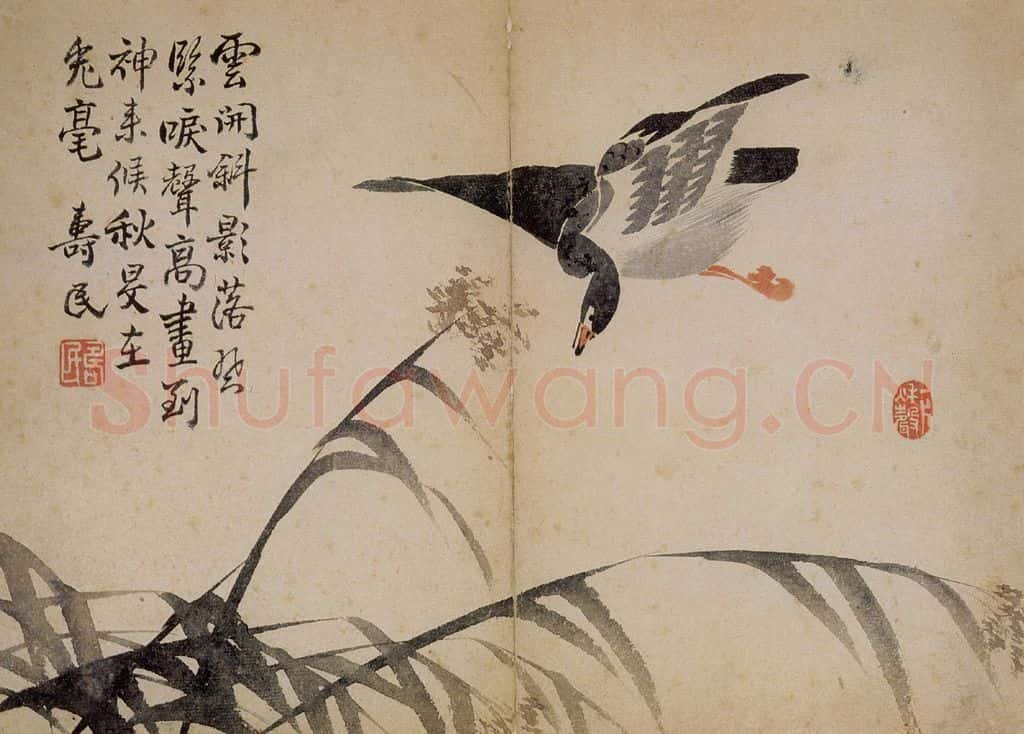 雲開斜影落風
緊唳聲高畫到
神來候秋旻在
兔毫 壽民
Shufawang.CN